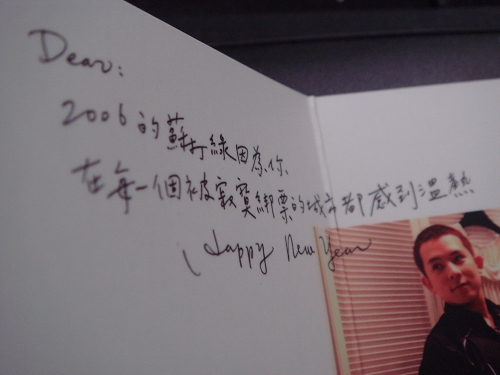 Dear:
2006的蘇打綠因為你
在每一個被寂寞綁票的城市都感到溫熱
Happy New Year